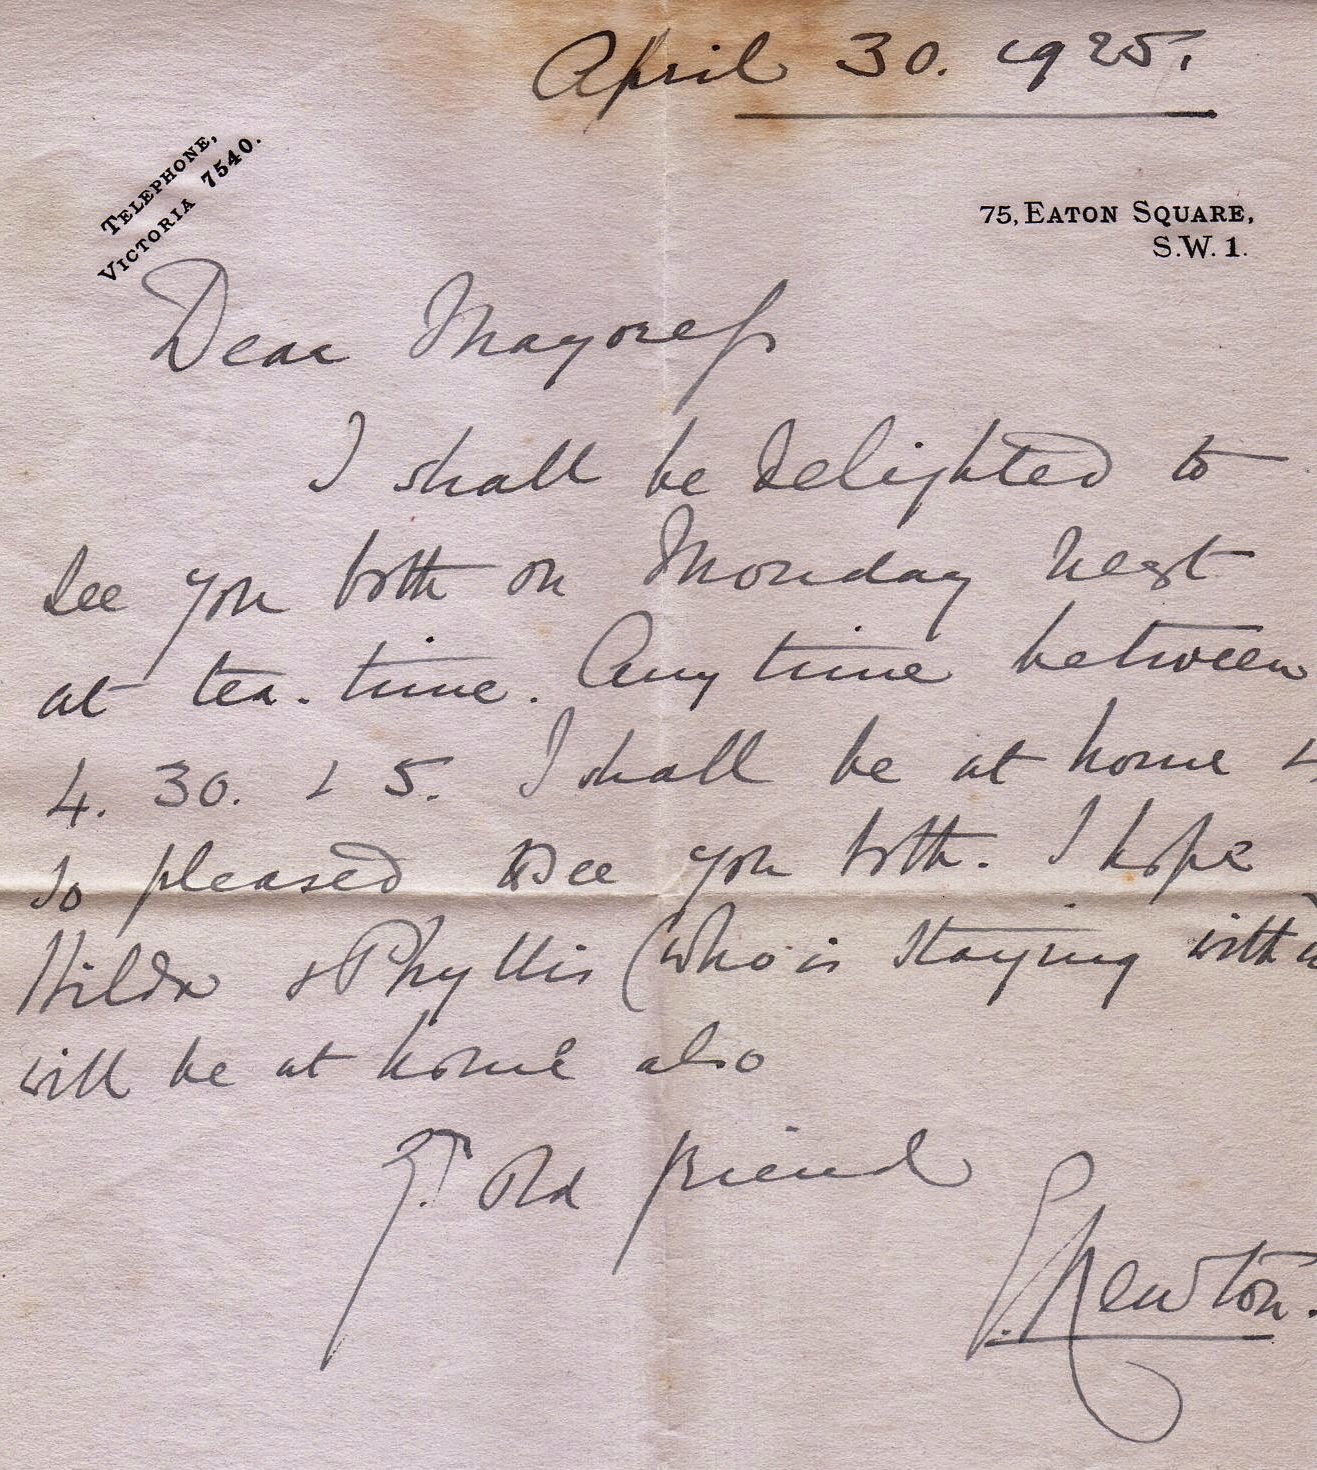 April 30. 1925.
TELEPHONE,
VICTORIA 7540.
75, EATON SQUARE,
S.W. 1.
Dear Mayoress
I shall be delighted to
see you both on Monday next
at tea-time. Any time between
4. 30. & 5. I shall be at home &
so pleased to see you both. I hope
Hilda & Phyllis (who is staying with
will be at home also
Yr. Old friend
Newton.